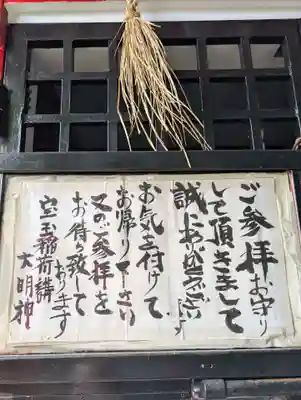 ご参拝お守り
して頂きまして
誠にありがとうございます
お気を付けて
お帰り下さい
又のご参拝を
お待ち致して
おります
宝玉稲荷講
大明神